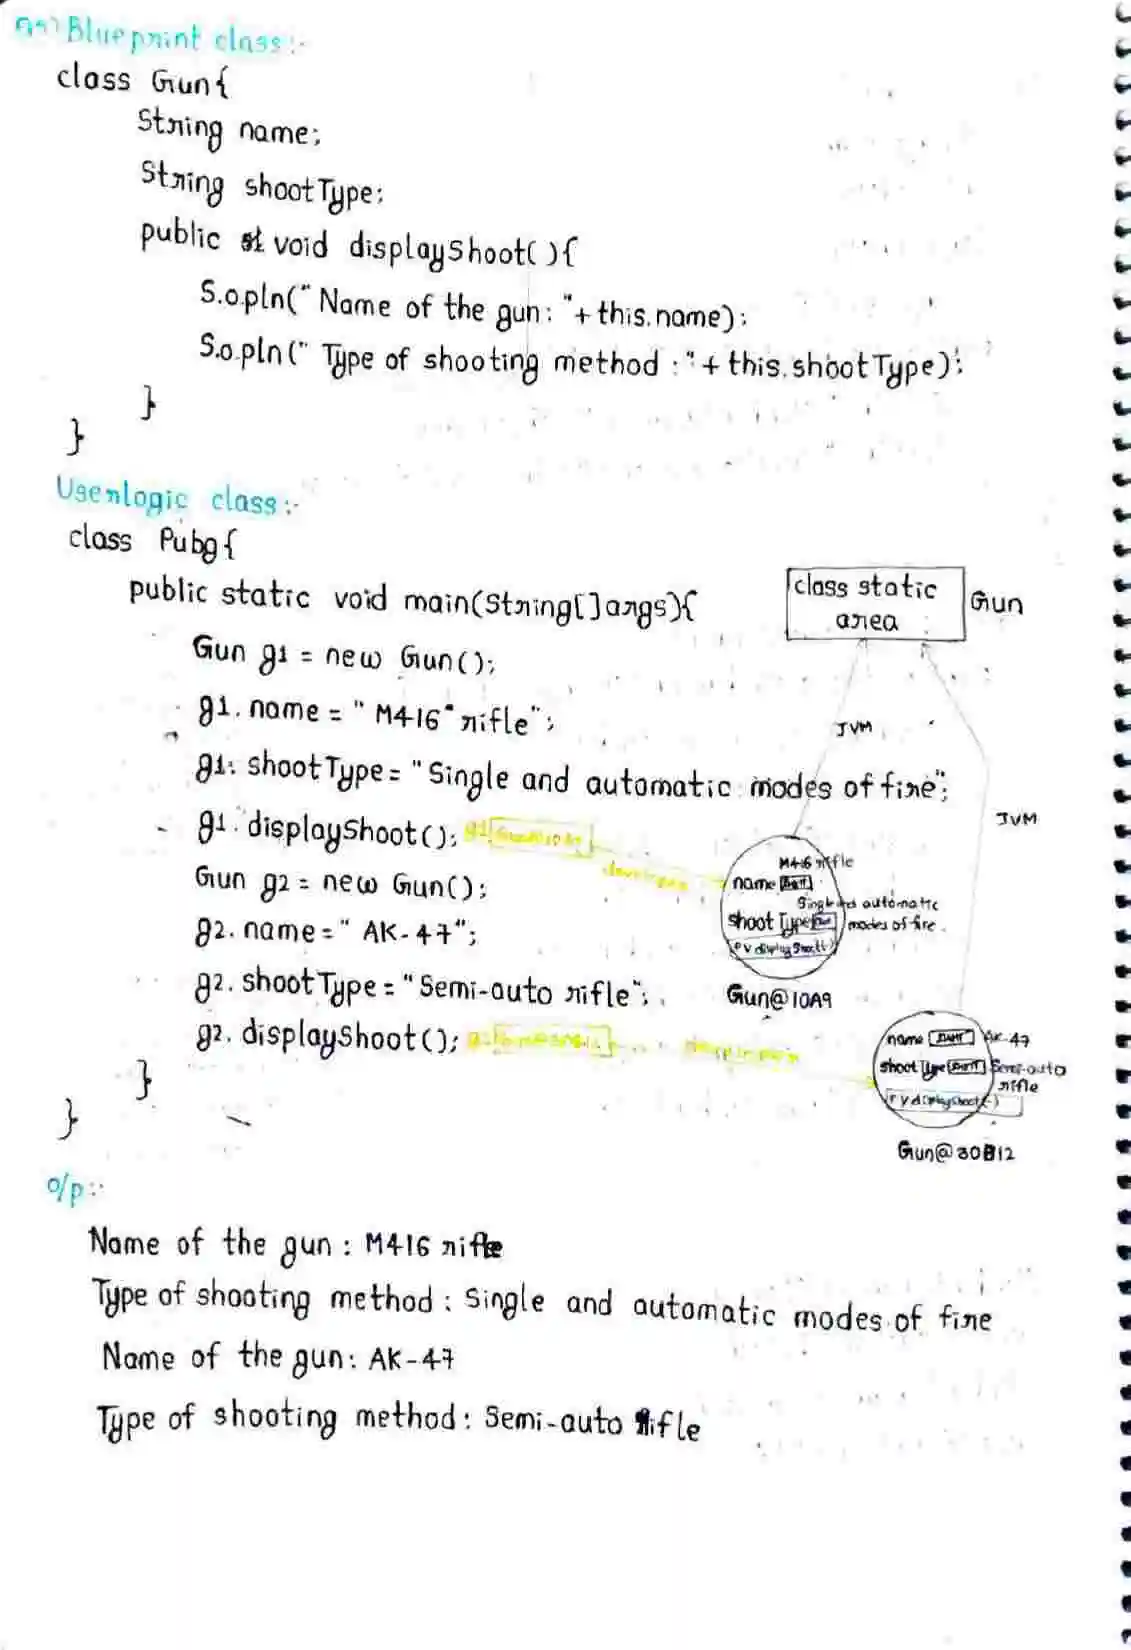 Blueprint class:-
class Gun{
String name;
String shootType;
public void displayShoot(){
S.o.pln("Name of the gun: "+this.name);
S.o.pln("Type of shooting method :"+this.shootType);
}
}
Userlogic class:-
class Pubg{
public static void main(String[]args){
Gun g1 = new Gun();
g1.name = "M416 rifle";
g1.shootType = "Single and automatic modes of fire";
g1.displayShoot();
Gun g2 = new Gun();
g2.name = "AK-47";
g2.shootType = "Semi-auto rifle";
g2.displayShoot();
}
}
class static
area
Gun
JVM
JVM
g1
developer
M416 rifle
name
Single and automatic
shootType
modes of fire
P V displayShoot()
Gun@10A9
name AK-47
shootType Semi-auto
rifle
P V displayShoot()
Gun@30B12
o/p:-
Name of the gun : M416 rifle
Type of shooting method : Single and automatic modes of fire
Name of the gun: AK-47
Type of shooting method : Semi-auto rifle